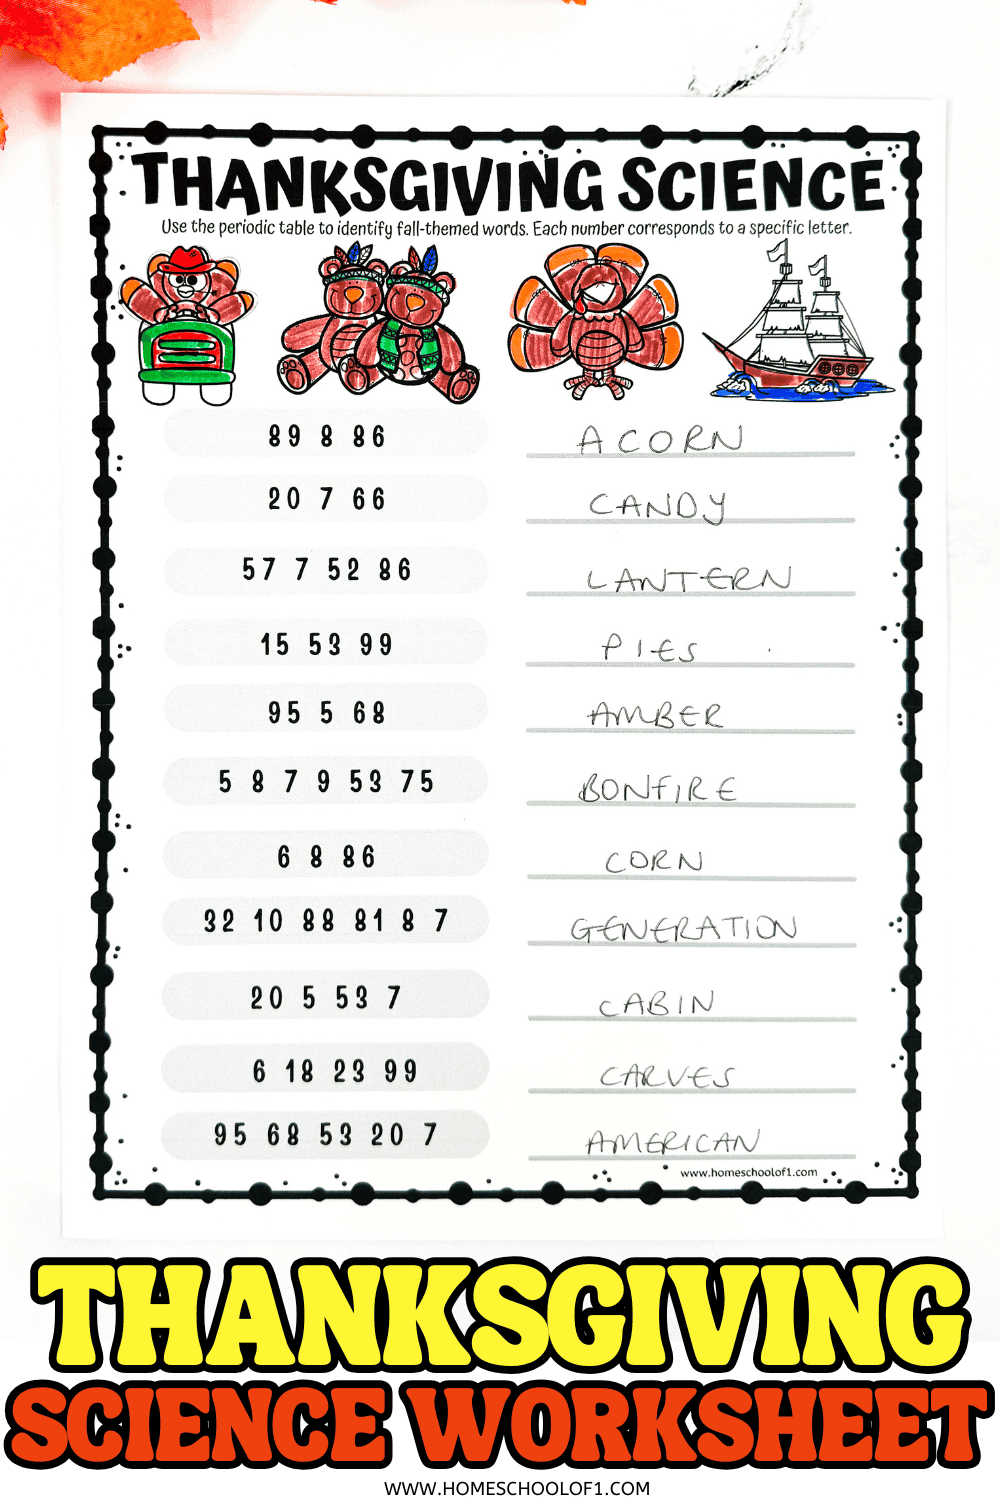 THANKSGIVING SCIENCE
Use the periodic table to identify fall-themed words. Each number corresponds to a specific letter.
89 8 86 ACORN
20 7 66 CANDY
57 7 52 86 LANTERN
15 53 99 PIES
95 5 68 AMBER
5 8 7 9 53 75 BONFIRE
6 8 86 CORN
32 10 88 81 8 7 GENERATION
20 5 53 7 CABIN
6 18 23 99 CARVES
95 68 53 20 7 AMERICAN
www.homeschoolof1.com
THANKSGIVING
SCIENCE WORKSHEET
WWW.HOMESCHOOLOF1.COM